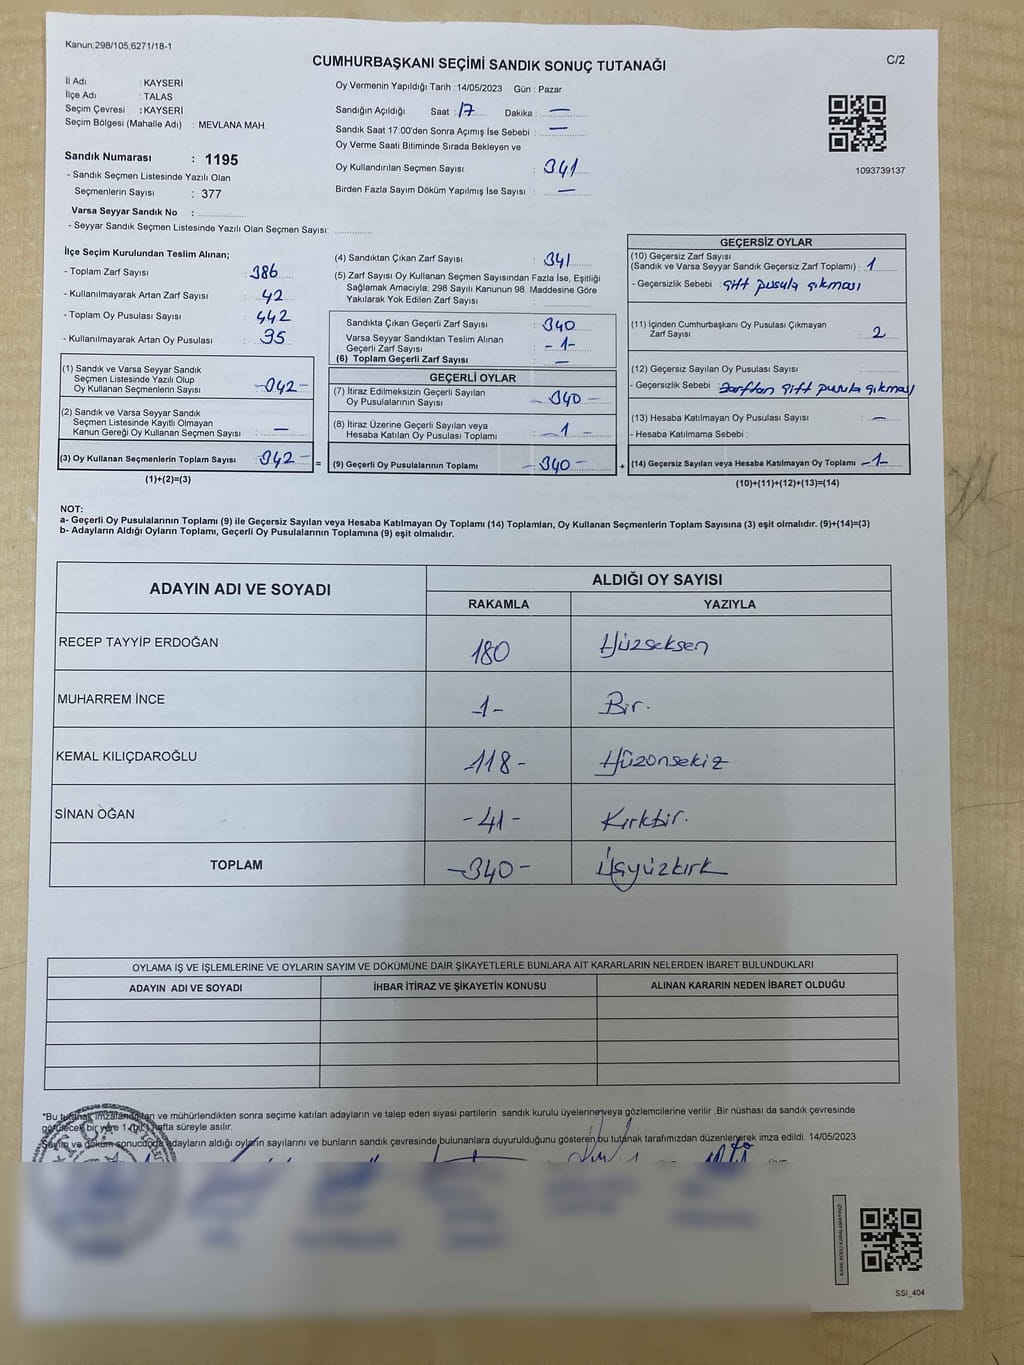 Kanun:298/105,6271/18-1
C/2
CUMHURBAŞKANI SEÇİMİ SANDIK SONUÇ TUTANAĞI
İl Adı : KAYSERİ
İlçe Adı : TALAS
Seçim Çevresi : KAYSERİ
Seçim Bölgesi (Mahalle Adı) : MEVLANA MAH.
Sandık Numarası : 1195
- Sandık Seçmen Listesinde Yazılı Olan
Seçmenlerin Sayısı : 377
Varsa Seyyar Sandık No :
- Seyyar Sandık Seçmen Listesinde Yazılı Olan Seçmen Sayısı:
Oy Vermenin Yapıldığı Tarih : 14/05/2023 Gün : Pazar
Sandığın Açıldığı Saat : 17 Dakika : —
Sandık Saat 17:00'den Sonra Açımış İse Sebebi : —
Oy Verme Saati Bitiminde Sırada Bekleyen ve
Oy Kullandırılan Seçmen Sayısı : 341
Birden Fazla Sayım Döküm Yapılmış İse Sayısı : —
1093739137
İlçe Seçim Kurulundan Teslim Alınan;
- Toplam Zarf Sayısı : 386
- Kullanılmayarak Artan Zarf Sayısı : 42
- Toplam Oy Pusulası Sayısı : 442
- Kullanılmayarak Artan Oy Pusulası : 95
(1) Sandık ve Varsa Seyyar Sandık
Seçmen Listesinde Yazılı Olup
Oy Kullanan Seçmenlerin Sayısı : -342-
(2) Sandık ve Varsa Seyyar Sandık
Seçmen Listesinde Kayıtlı Olmayan
Kanun Gereği Oy Kullanan Seçmen Sayısı : —
(3) Oy Kullanan Seçmenlerin Toplam Sayısı : 342-
(1)+(2)=(3)
(4) Sandıktan Çıkan Zarf Sayısı : 341
(5) Zarf Sayısı Oy Kullanan Seçmen Sayısından Fazla İse, Eşitliği
Sağlamak Amacıyla; 298 Sayılı Kanunun 98. Maddesine Göre
Yakılarak Yok Edilen Zarf Sayısı :
Sandıkta Çıkan Geçerli Zarf Sayısı : 340
Varsa Seyyar Sandıktan Teslim Alınan
Geçerli Zarf Sayısı : -1-
(6) Toplam Geçerli Zarf Sayısı : —
GEÇERLİ OYLAR
(7) İtiraz Edilmeksizin Geçerli Sayılan
Oy Pusulalarının Sayısı : -340-
(8) İtiraz Üzerine Geçerli Sayılan veya
Hesaba Katılan Oy Pusulası Toplamı : -1-
=
(9) Geçerli Oy Pusulalarının Toplamı : -340-
+
GEÇERSİZ OYLAR
(10) Geçersiz Zarf Sayısı
(Sandık ve Varsa Seyyar Sandık Geçersiz Zarf Toplamı) : 1
- Geçersizlik Sebebi : Çift pusula çıkması
(11) İçinden Cumhurbaşkanı Oy Pusulası Çıkmayan
Zarf Sayısı : 2
(12) Geçersiz Sayılan Oy Pusulası Sayısı :
- Geçersizlik Sebebi : Zarftan çift pusula çıkması
(13) Hesaba Katılmayan Oy Pusulası Sayısı : —
- Hesaba Katılmama Sebebi :
(14) Geçersiz Sayılan veya Hesaba Katılmayan Oy Toplamı : -1-
(10)+(11)+(12)+(13)=(14)
NOT:
a- Geçerli Oy Pusulalarının Toplamı (9) ile Geçersiz Sayılan veya Hesaba Katılmayan Oy Toplamı (14) Toplamları, Oy Kullanan Seçmenlerin Toplam Sayısına (3) eşit olmalıdır. (9)+(14)=(3)
b- Adayların Aldığı Oyların Toplamı, Geçerli Oy Pusulalarının Toplamına (9) eşit olmalıdır.
ADAYIN ADI VE SOYADI
ALDIĞI OY SAYISI
RAKAMLA YAZIYLA
RECEP TAYYİP ERDOĞAN 180 Yüzseksen
MUHARREM İNCE 1- Bir.
KEMAL KILIÇDAROĞLU -118- Yüzonsekiz
SİNAN OĞAN -41- Kırkbir.
TOPLAM -340- Üçyüzkırk
OYLAMA İŞ VE İŞLEMLERİNE VE OYLARIN SAYIM VE DÖKÜMÜNE DAİR ŞİKAYETLERLE BUNLARA AİT KARARLARIN NELERDEN İBARET BULUNDUKLARI
ADAYIN ADI VE SOYADI İHBAR İTİRAZ VE ŞİKAYETİN KONUSU ALINAN KARARIN NEDEN İBARET OLDUĞU
*Bu tutanak imzalandıktan ve mühürlendikten sonra seçime katılan adayların ve talep eden siyasi partilerin sandık kurulu üyelerine veya gözlemcilerine verilir. Bir nüshası da sandık çevresinde
görülecek bir yere 1 (bir) hafta süreyle asılır.
Sayım ve döküm sonucunda adayların aldığı oyların sayılarını ve bunların sandık çevresinde bulunanlara duyurulduğunu gösteren bu tutanak tarafımızdan düzenlenerek imza edildi. 14/05/2023
KARE KODU KARALAMAYINIZ!
SSI_404